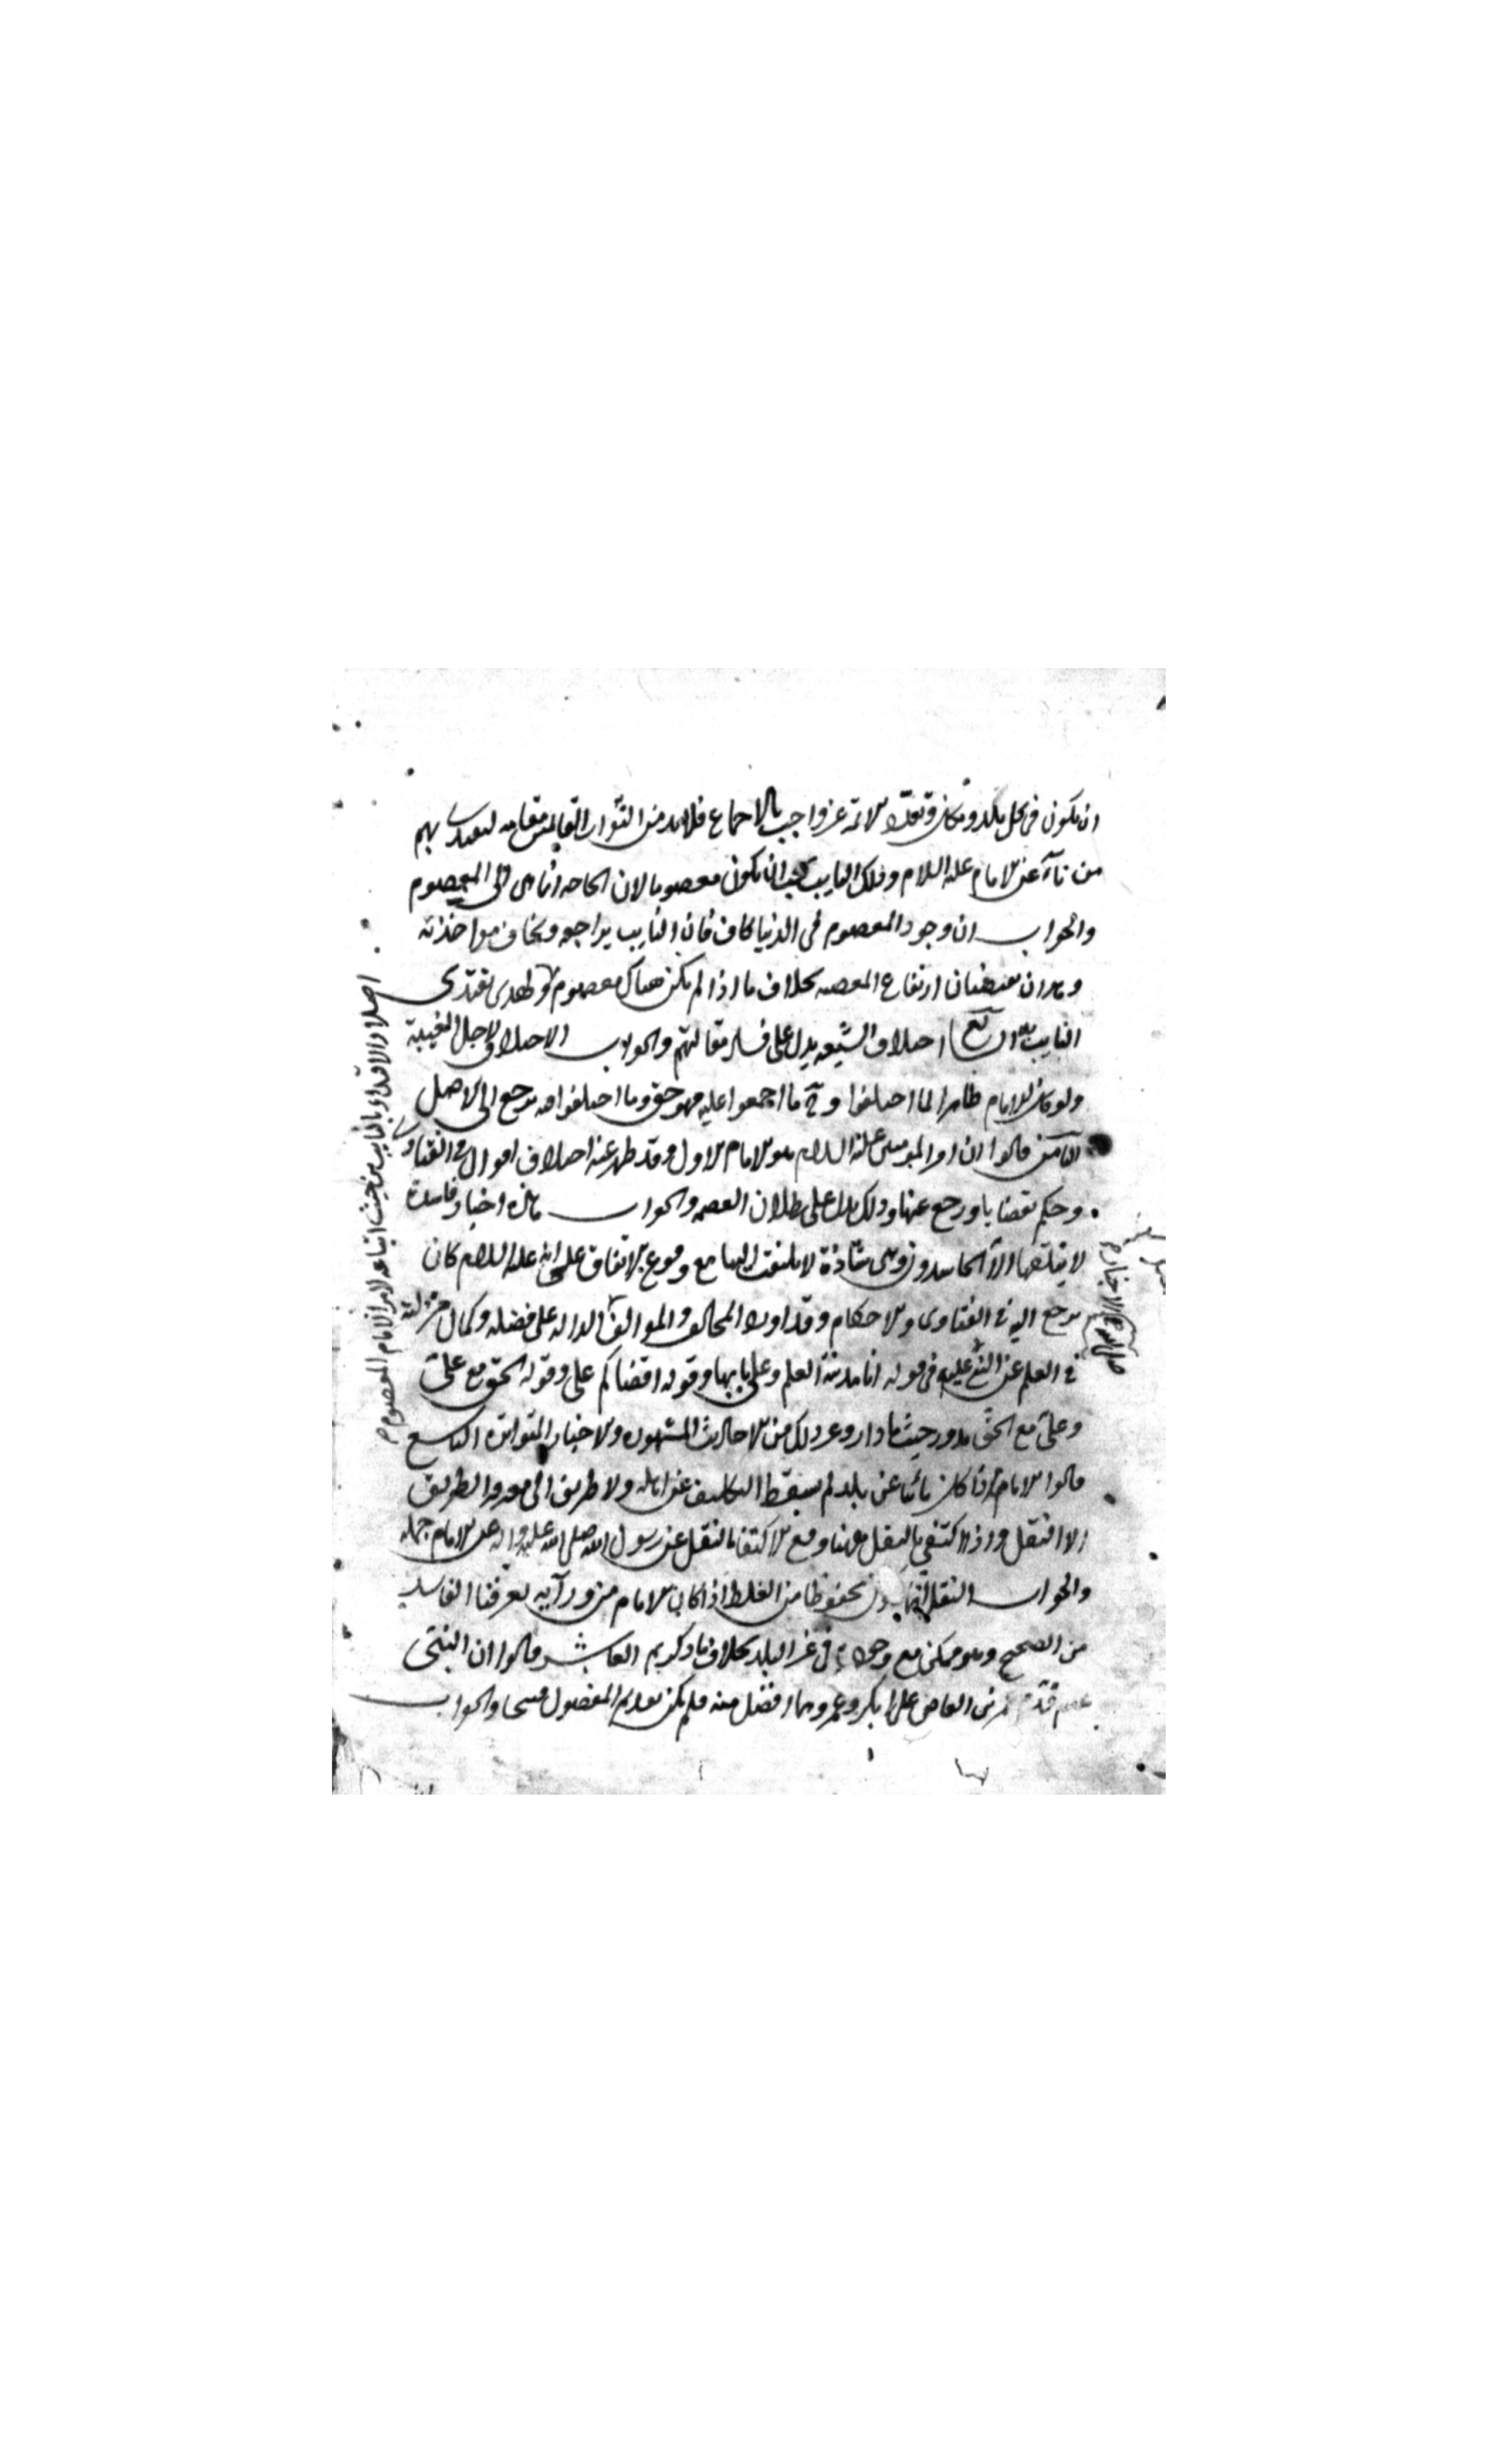 ان يكون فى كل بلد ومكان وتعدد الائمة غير واجب بالاجماع فلابد من النواب القائمين مقامه ليقتدى بهم
من نآء عن الامام عليه السلام وذلك النايب يجب ان يكون معصوما لان الحاجة انما هى الى المعصوم
والجواب ان وجود المعصوم فى الدنيا كاف فان النايب يراجعه ويخاف مواخذته
وهذان يقتضيان ارتفاع المعصية بخلاف ما اذا لم يكن هناك معصوم يقتدى
النايب به السابع اختلاف الشيعة يدل على فساد مقالتهم والجواب الاختلاف لاجل الغيبة
ولو كان الامام ظاهرا لما اختلفوا وفى ما اجمعوا عليه فهو حق وما اختلفوا فيه يرجع الى الاصل
الثامن قالوا ان امير المومنين عليه السلام هو الامام الاول وقد ظهر عنه اختلاف اقوال فى الفتاوى
وحكم بقضايا ورجع عنها وذلك يدل على بطلان العصمة والجواب هذه اخبار فاسدة
لا ينقلها الا الحاسدون وهى شاذة لا يلتفت اليها مع وقوع الاتفاق على انه عليه السلام كان
يرجع اليه فى الفتاوى والاحكام وقد اورد المخالف والموالف الدالة على فضله وكمال منزلته
فى العلم عن النبى عليه فى قوله انا مدينة العلم وعلى بابها وقوله اقضاكم على وقوله الحق مع على
وعلى مع الحق يدور حيث ما دار وغير ذلك من الاحاديث المشهورة والاخبار المتواترة التاسع
قالوا الامام اذا كان نائيا عن بلد لم يسقط التكليف عن اهله ولا طريق الى معرفة الطريق
الا النقل واذا اكتفي بالنقل ههنا وقع الاكتفا بالنقل عن رسول الله صلى الله عليه واله عن الامام جملة
والجواب النقل انما يكون محفوظا من الغلط اذا كان الامام من ورآيه يعرفنا الفاسد
من الصحيح وهو ممكن مع وجوده فى غير البلد بخلاف ما ذكرتم العاشر قالوا ان النبى
قدم عمرو بن العاص على ابى بكر وعمر وهما افضل منه فلم يكن تقديم المفضول قبيحا والجواب
اختلاف الاقتداء بالنايب من حيث اتباعه لامر الامام المعصوم
الاخبار
صلى الله